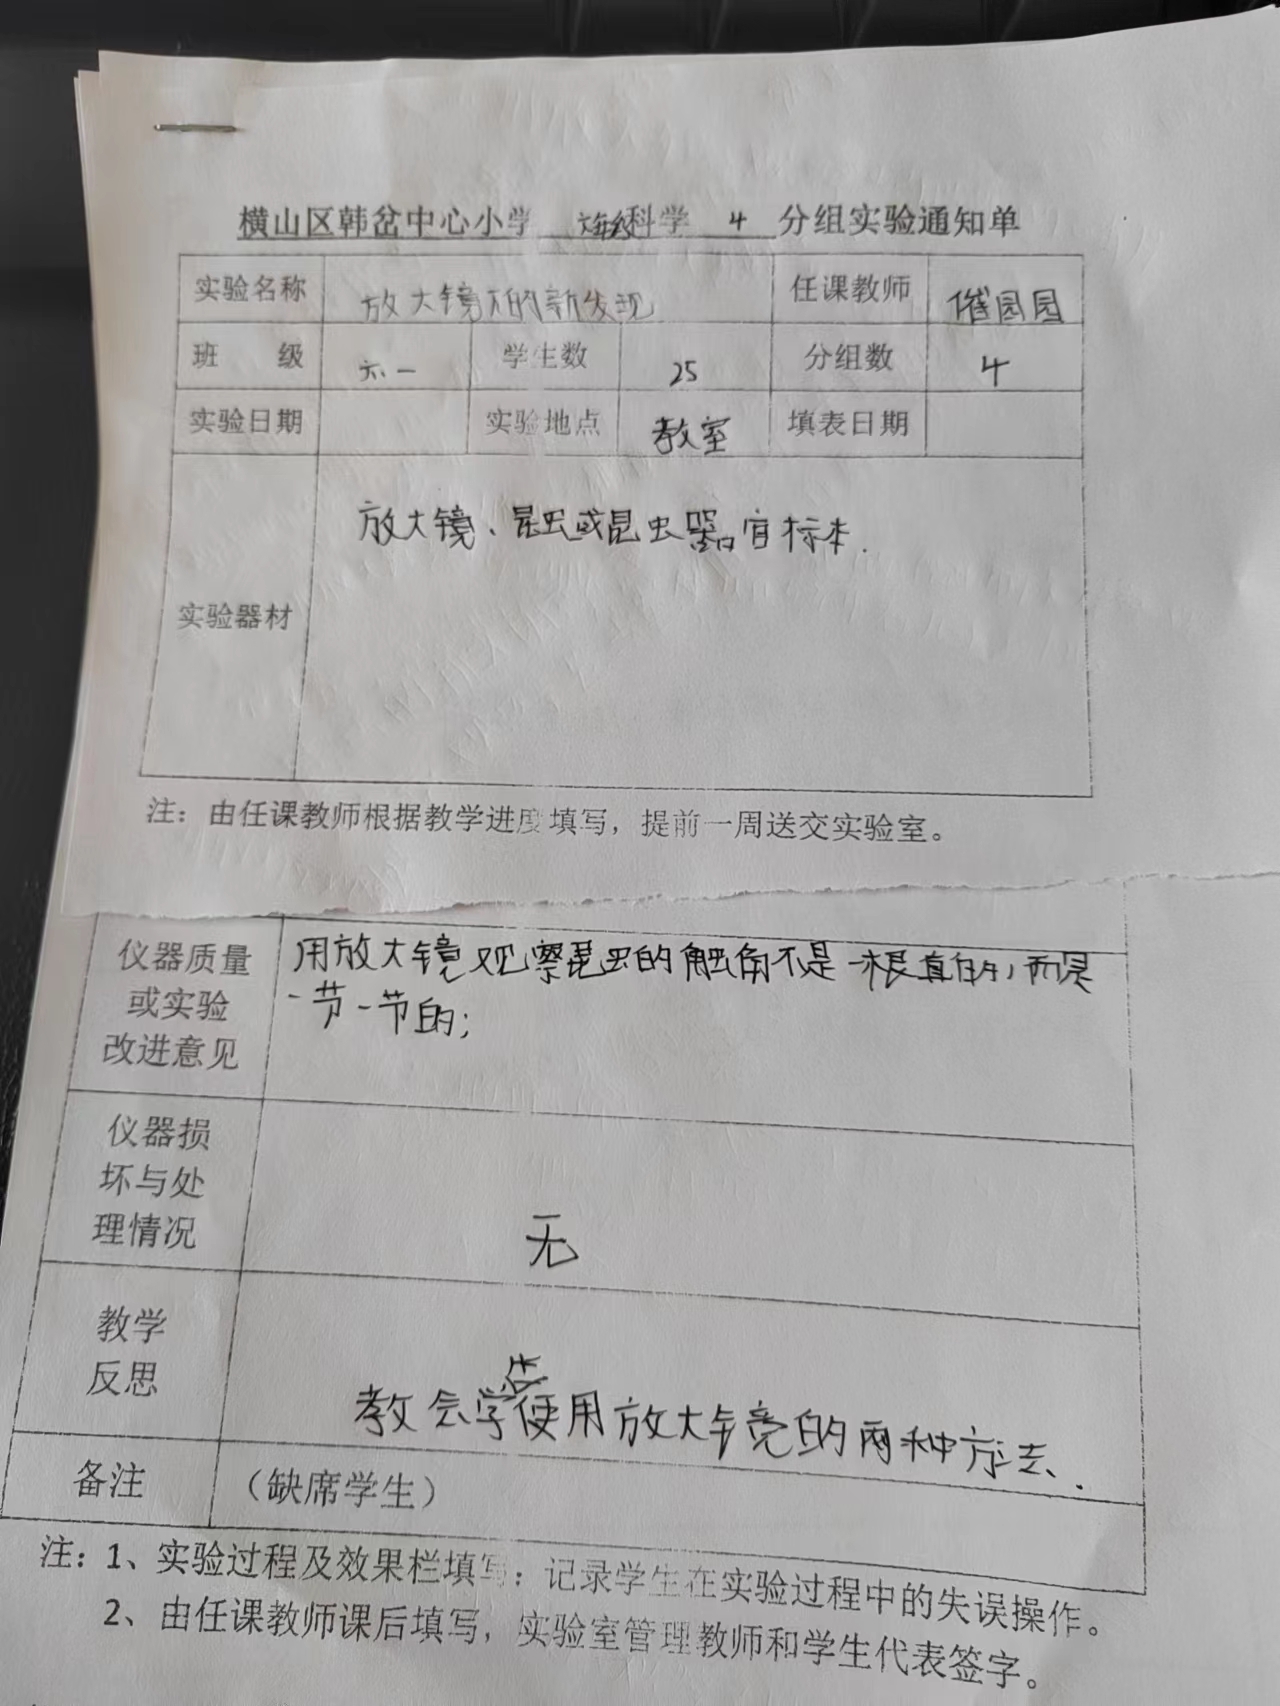 横山区韩岔中心小学 六年级科学 4 分组实验通知单
实验名称 放大镜下的新发现 任课教师 崔园园
班 级 六.一 学生数 25 分组数 4
实验日期 实验地点 教室 填表日期
实验器材 放大镜、昆虫或昆虫器官标本.
注：由任课教师根据教学进度填写，提前一周送交实验室。
仪器质量
或实验
改进意见
用放大镜观察昆虫的触角不是一根直的，而是
一节一节的;
仪器损
坏与处
理情况
无
教学
反思
教会学生使用放大镜的两种方法.
备注 （缺席学生）
注：1、实验过程及效果栏填写：记录学生在实验过程中的失误操作。
2、由任课教师课后填写，实验室管理教师和学生代表签字。